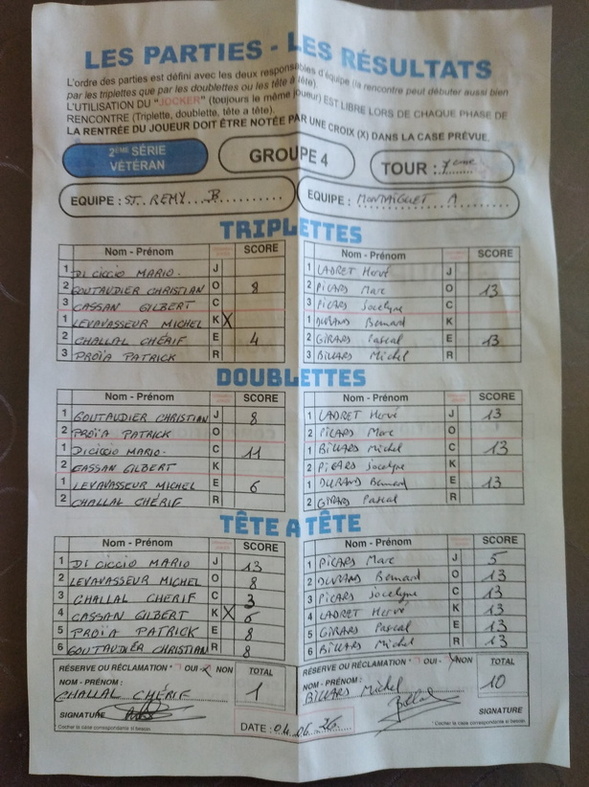 LES PARTIES - LES RÉSULTATS
L'ordre des parties est défini avec les deux responsables d'équipe (la rencontre peut débuter aussi bien
par les triplettes que par les doublettes ou les tête à tête).
L'UTILISATION DU "JOCKER" (toujours le même joueur) EST LIBRE LORS DE CHAQUE PHASE DE
RENCONTRE (Triplette, doublette, tête a tête).
LA RENTRÉE DU JOUEUR DOIT ÊTRE NOTÉE PAR UNE CROIX (X) DANS LA CASE PRÉVUE.
2ÈME SÉRIE
VÉTÉRAN
GROUPE 4
TOUR : 7eme
EQUIPE : ST. REMY B
EQUIPE : MONTAIGUET A
TRIPLETTES
Nom - Prénom SCORE Nom - Prénom SCORE
1 DI CICCIO MARIO. J 1 LADRET Hervé J
2 GOUTAUDIER CHRISTIAN O 8 2 PICARS Marc O 13
3 CASSAN GILBERT C 3 PICARS Jocelyne C
1 LEVAVASSEUR MICHEL K X 1 DURANS Bernard K
2 CHALLAL CHÉRIF E 4 2 GIRARS Pascal E 13
3 PROÏA PATRICK R 3 BILLARS Michel R
DOUBLETTES
Nom - Prénom SCORE Nom - Prénom SCORE
1 GOUTAUDIER CHRISTIAN J 8 1 LADRET Hervé J 13
2 PROÏA PATRICK O 2 PICARS Marc O
1 DICICCIO MARIO. C 11 1 BILLARS Michel C 13
2 CASSAN GILBERT K 2 PICARS Jocelyne K
1 LEVAVASSEUR MICHEL E 6 1 DURANS Bernard E 13
2 CHALLAL CHÉRIF R 2 GIRARS Pascal R
TÊTE A TÊTE
Nom - Prénom SCORE Nom - Prénom SCORE
1 DI CICCIO MARIO J 13 1 PICARS Marc J 5
2 LEVAVASSEUR MICHEL O 8 2 DURANS Bernard O 13
3 CHALLAL CHERIF C 3 3 PICARS Jocelyne C 13
4 CASSAN GILBERT K X 6 4 LADRET Hervé K 13
5 PROÏA PATRICK E 8 5 GIRARS Pascal E 13
6 GOUTAUDIER CHRISTIAN R 8 6 BILLARS Michel R 13
RÉSERVE OU RÉCLAMATION * OUI - X NON TOTAL RÉSERVE OU RÉCLAMATION * OUI - X NON TOTAL
NOM - PRÉNOM : NOM - PRÉNOM :
CHALLAL CHÉRIF 1 BILLARS Michel 10
SIGNATURE SIGNATURE
DATE : 04.06.26
* Cocher la case correspondante si besoin. * Cocher la case correspondante si besoin.